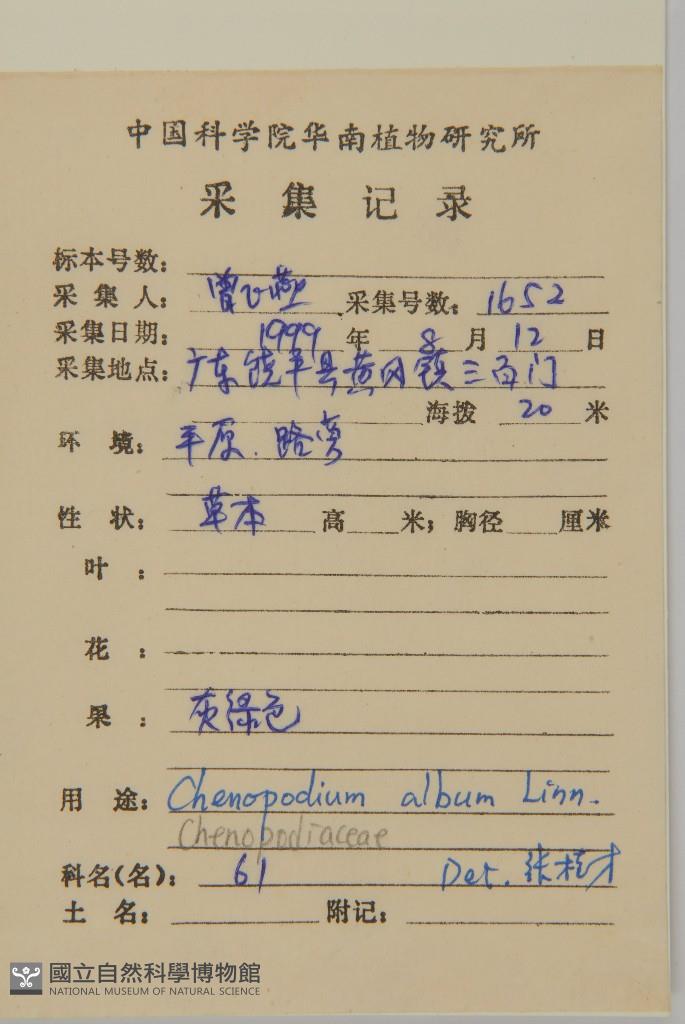 中国科学院华南植物研究所
采集记录
标本号数:
采集人: 曾飞燕 采集号数: 1652
采集日期: 1999 年 8 月 12 日
采集地点: 广东饶平县黄冈镇三百门
海拨 20 米
环境: 平原、路旁
性状: 草本 高 米; 胸径 厘米
叶:
花:
果: 灰绿色
用途: Chenopodium album Linn.
Chenopodiaceae
科名(名): 61 Det. 张桂才
土名: 附记:
國立自然科學博物館
NATIONAL MUSEUM OF NATURAL SCIENCE